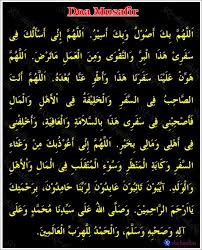 Doa Musafir
اَللّٰهُمَّ بِكَ أَصُوْلُ وَبِكَ أَسِيْرُ. اَللّٰهُمَّ إِنِّى أَسْأَلُكَ فِى
سَفَرِىْ هٰذَا الْبِرَّ وَالتَّقْوٰى وَمِنَ الْعَمَلِ مَاتَرْضَ. اَللّٰهُمَّ
هَوِّنْ عَلَيْنَا سَفَرَنَا هٰذَا وَاطْوِ عَنَّا بُعْدَهُ. اَللّٰهُمَّ أَنْتَ
الصَّاحِبُ فِى السَّفَرِ وَالْخَلِيْفَةُ فِى الْأَهْلِ وَالْمَالِ
فَاَصْحِبْنِى فِى سَفَرِى هٰذَا بِالسَّلَامَةِ وَالْعَافِيَةِ، وَاخْلُفْنِى
فِى أَهْلِى وَمَالِى بِخَيْرٍ. اَللّٰهُمَّ إِنِّى أَعُوْذُبِكَ مِنْ وَعْثَاءِ
السَّفَرِ وَكَآبَةِ الْمَنْظَرِ وَسُوْءِ الْمُنْقَلَبِ فِى الْمَالِ وَالْأَهْلِ
وَالْوَلَدِ. آيِبُوْنَ تَائِبُوْنَ عَابِدُوْنَ لِرَبِّنَا حَامِدُوْنَ، بِرَحْمَتِكَ
يَااَرْحَمَ الرَّاحِمِيْنَ. وَصَلَّى اللهُ عَلَى سَيِّدِنَا مُحَمَّدٍ وَعَلَى
آلِهِ وَصَحْبِهِ وَسَلَّمَ، وَالْحَمْدُ لِلّٰهِ رَبِّ الْعَالَمِيْنَ.